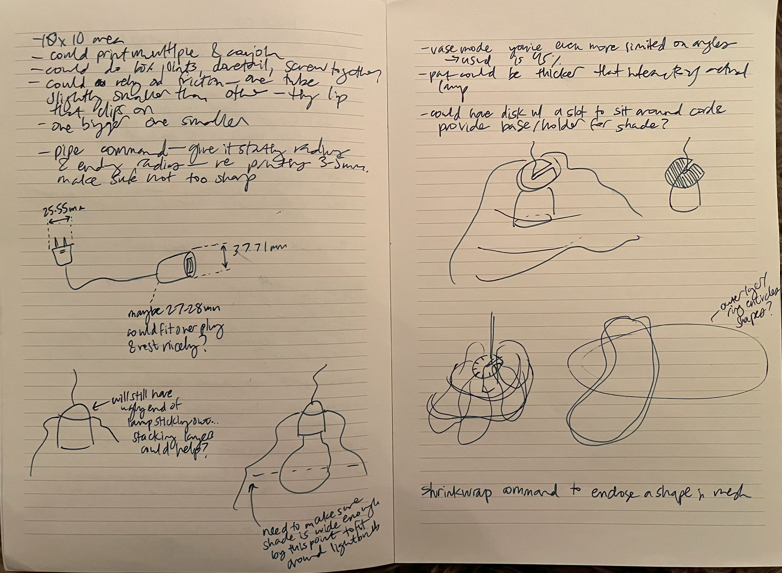 - 10 x 10 area
- could print multiple & conjoin
- could do box joints, dovetail, screw together
- could rely on friction - one tube
slightly smaller than other - tiny lip
that clips on
- one bigger one smaller
- pipe command - give it starting radius
& ending radius - re printing 3-5mm,
make sure not too sharp
25.55mm
37.71mm
maybe 27-28mm
could fit over plug
& rest nicely?
will still have
ugly end of
lamp sticking out...
stacking layers
could help?
need to make sure
shade is wide enough
by this point to fit
around lightbulb
- vase mode you're even more limited on angles
→ usual is 45%
- part could be thicker that interacts w/ actual
lamp
- could have disk w/ a slot to sit around cord &
provide base/holder for shade?
outer layer
ring encircles
shapes?
shrinkwrap command to enclose a shape in mesh